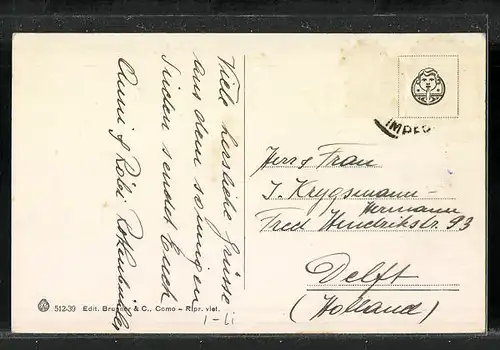 Viele herzliche Grüsse
aus dem sonnigen
Süden sendet Euch
Anni & Röbi
1-41
512-39 Edit. Brunner & C., Como – Ripr. viet.
Herr & Frau
J. Krygsmann-
Hermann
Fred Hendrikstr. 93
Delft
(Holland)